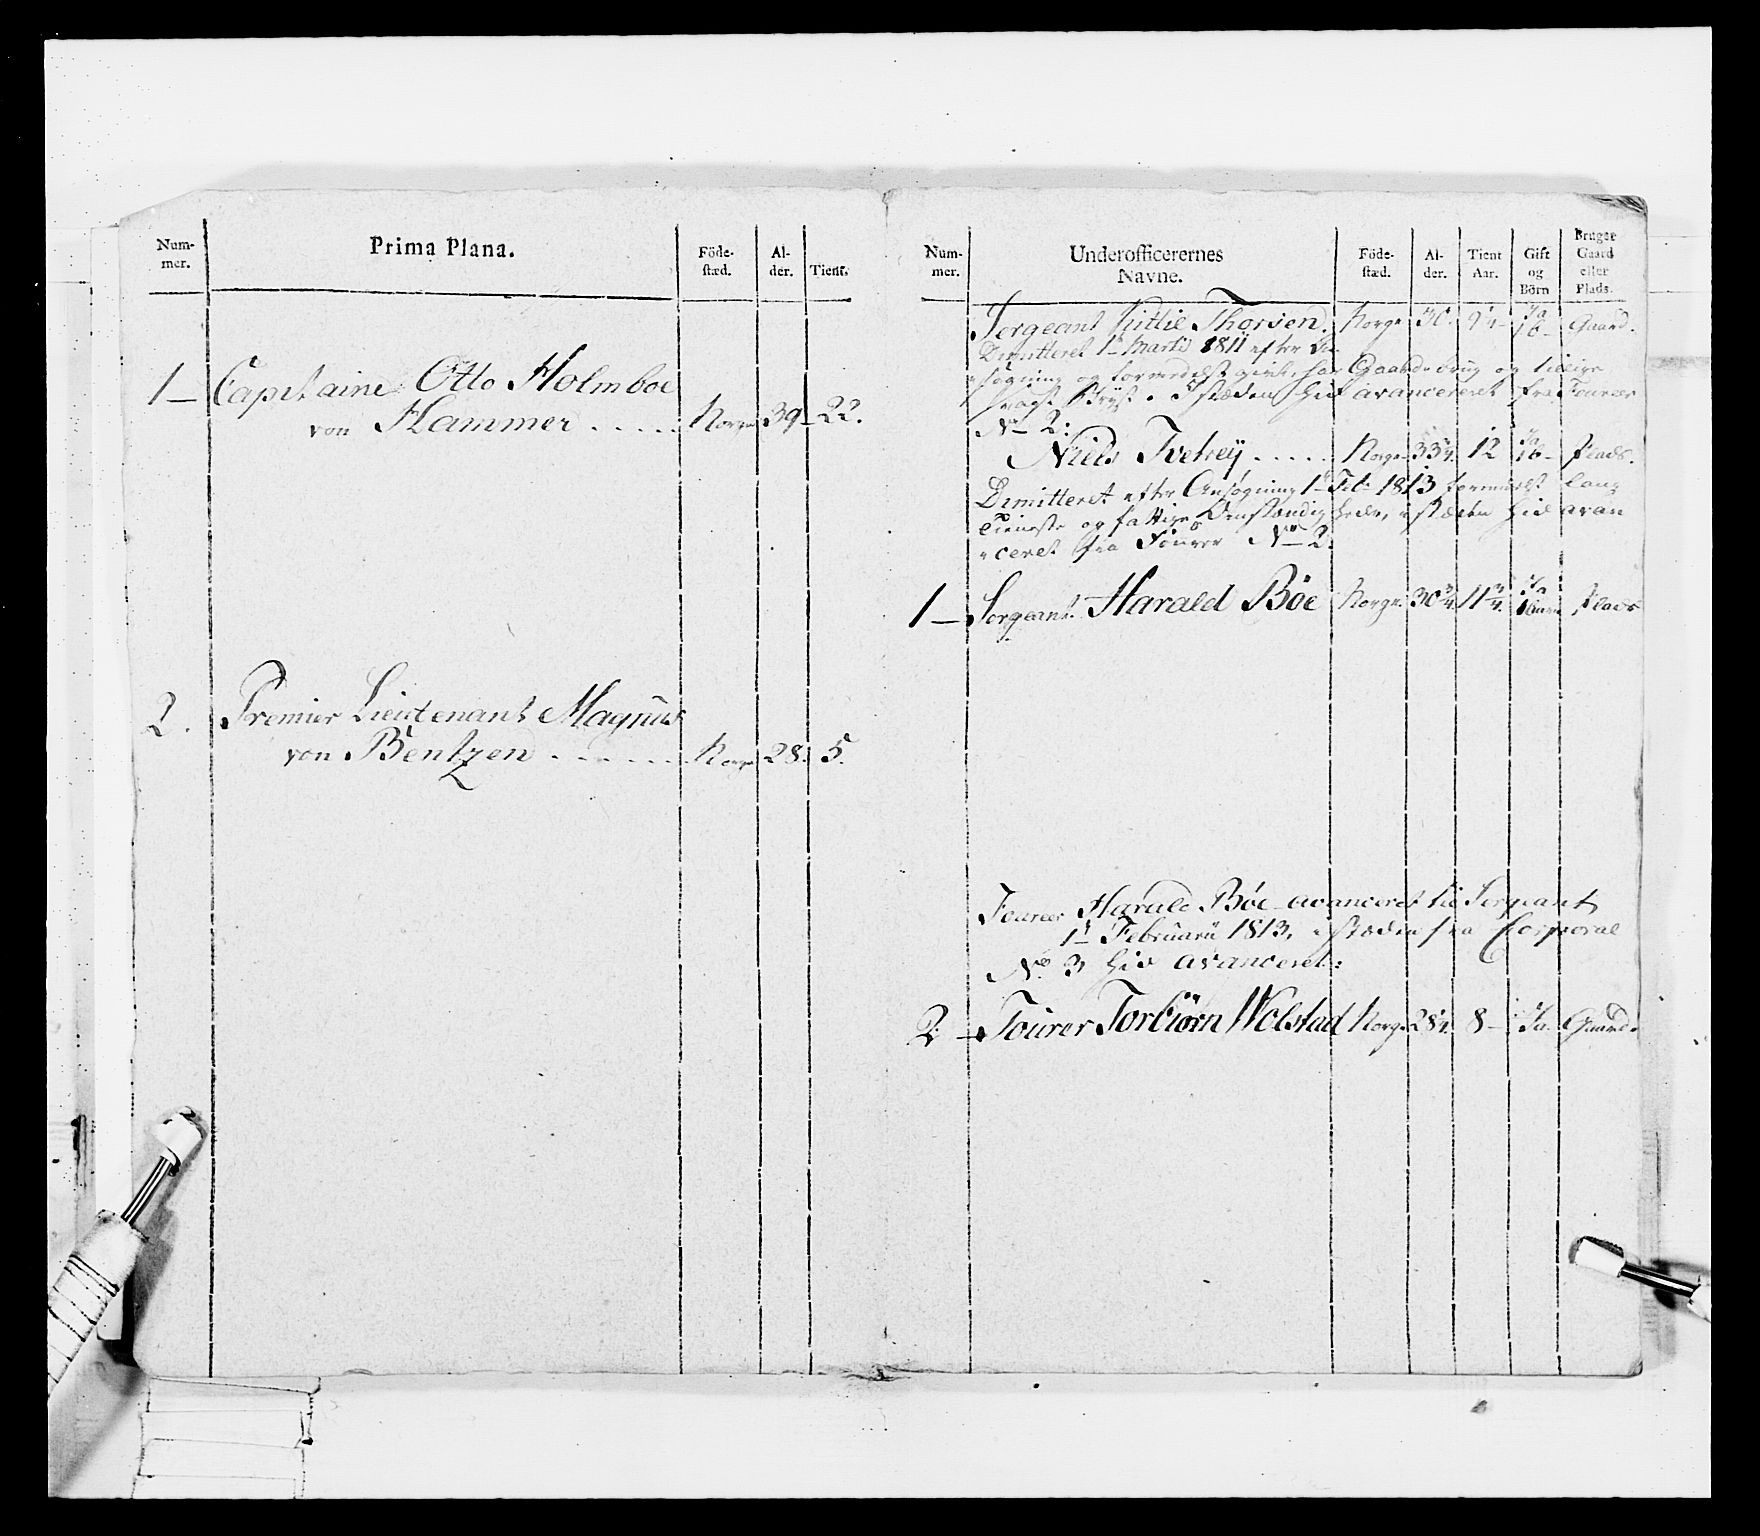 Num-
mer.
Prima Plana.
Föde-
stæd.
Al-
der.
Tient.
1 – Capitaine Otto Holmboe
von Hammer ..... Norge 39 – 22.
2. Premier Lieutenant Magnus
von Bentzen ...... Norge 28. 5.
Num-
mer.
Underofficerernes
Navne.
Föde-
stæd.
Al-
der.
Tient
Aar.
Gift
og
Börn
Bruger
Gaard
eller
Plads.
Sergeant Kittil Thorsen. Norge 30. Ja 1 b – Gaard.
Dimitteret 1te Martii 1811 efter An-
søgning og Gaards brug og tillige
svagt Bryst. I stæden hid avanceret fra Foureer
No 2:
Niels Tvetøy ..... Norge 33 12 Ja 1 b – Plads.
Dimitteret efter Ansøgning 1te Feb: 1813 formedelst lang
Tieneste og fattige Omstændigheder, i stæden hid avan
ceret fra Fourer No 2.
1 – Sergeant Harald Bøe Norge 30 3/4. 11 3/4. Ja 1 barn Plads
Foureer Harald Bøe avanceret til Sergeant
1te Februarii 1813, i stæden fra Corporal
No 3 hid avanceret:
2 – Fourer Torbiørn Wolstad Norge 28 1/4. 8 – Ja. Gaard.